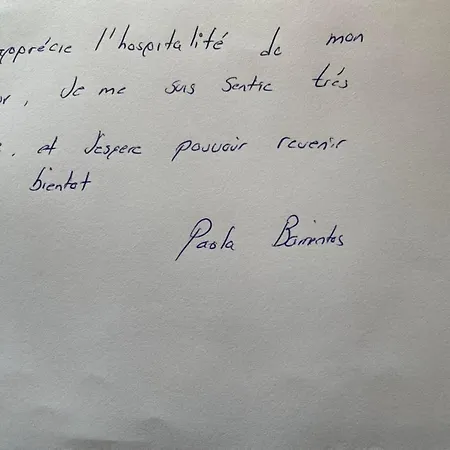 apprécie l'hospitalité de mon
, Je me suis sentie très
, et J'espere pouvoir revenir
bientot
Paola Barrientos